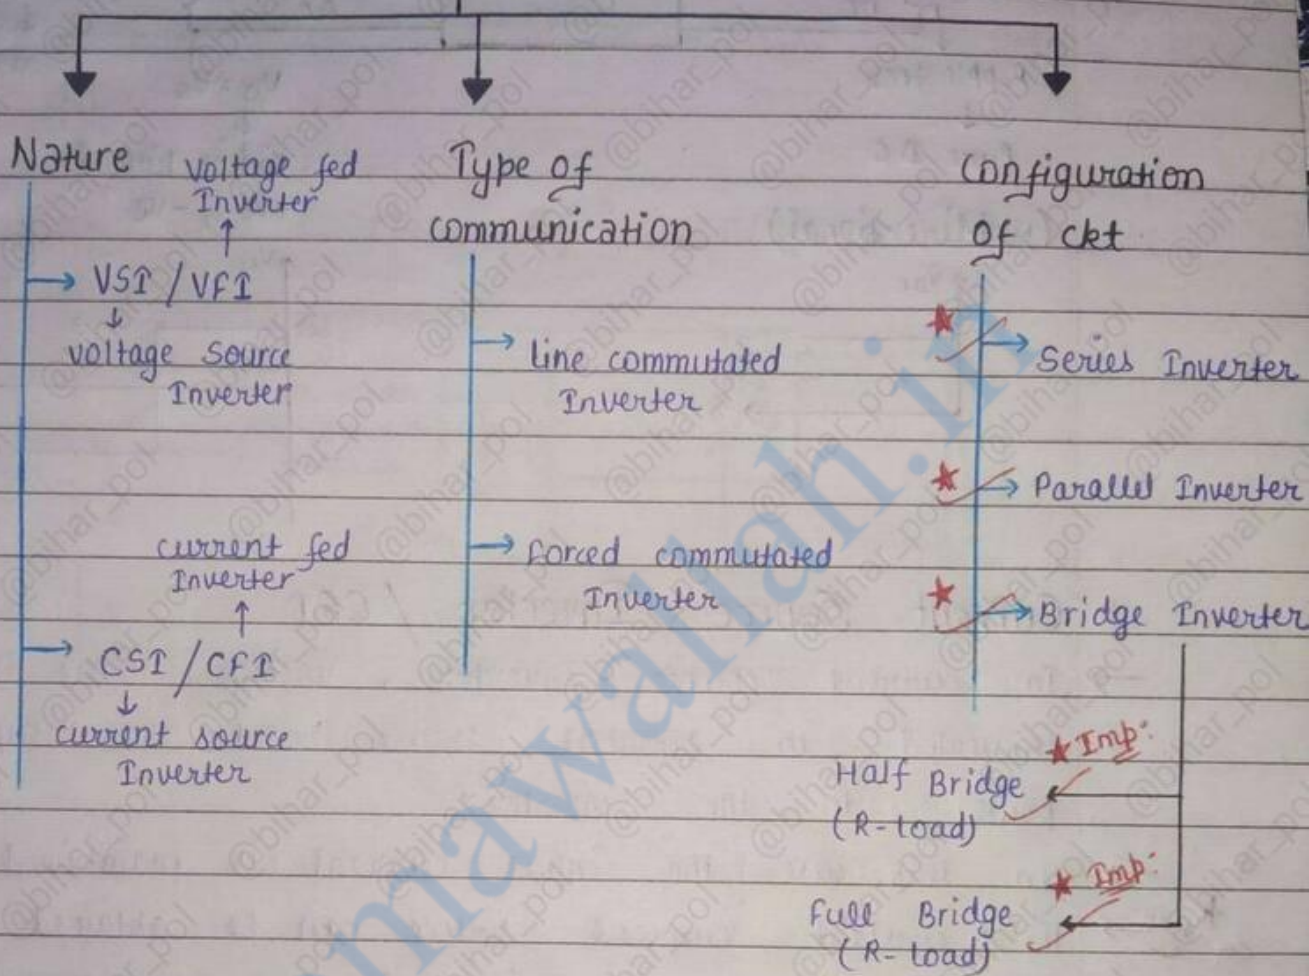 Nature
voltage fed
Inverter
↑
→ VSI / VFI
↓
voltage source
Inverter
current fed
Inverter
↑
→ CSI / CFI
↓
current source
Inverter
Type of
communication
→ line commutated
Inverter
→ forced commutated
Inverter
configuration
of ckt
★ → Series Inverter
★ → Parallel Inverter
★ → Bridge Inverter
★ Imp:
Half Bridge
(R-load)
★ Imp:
Full Bridge
(R-load)
mawallah.in
@bihar_pol